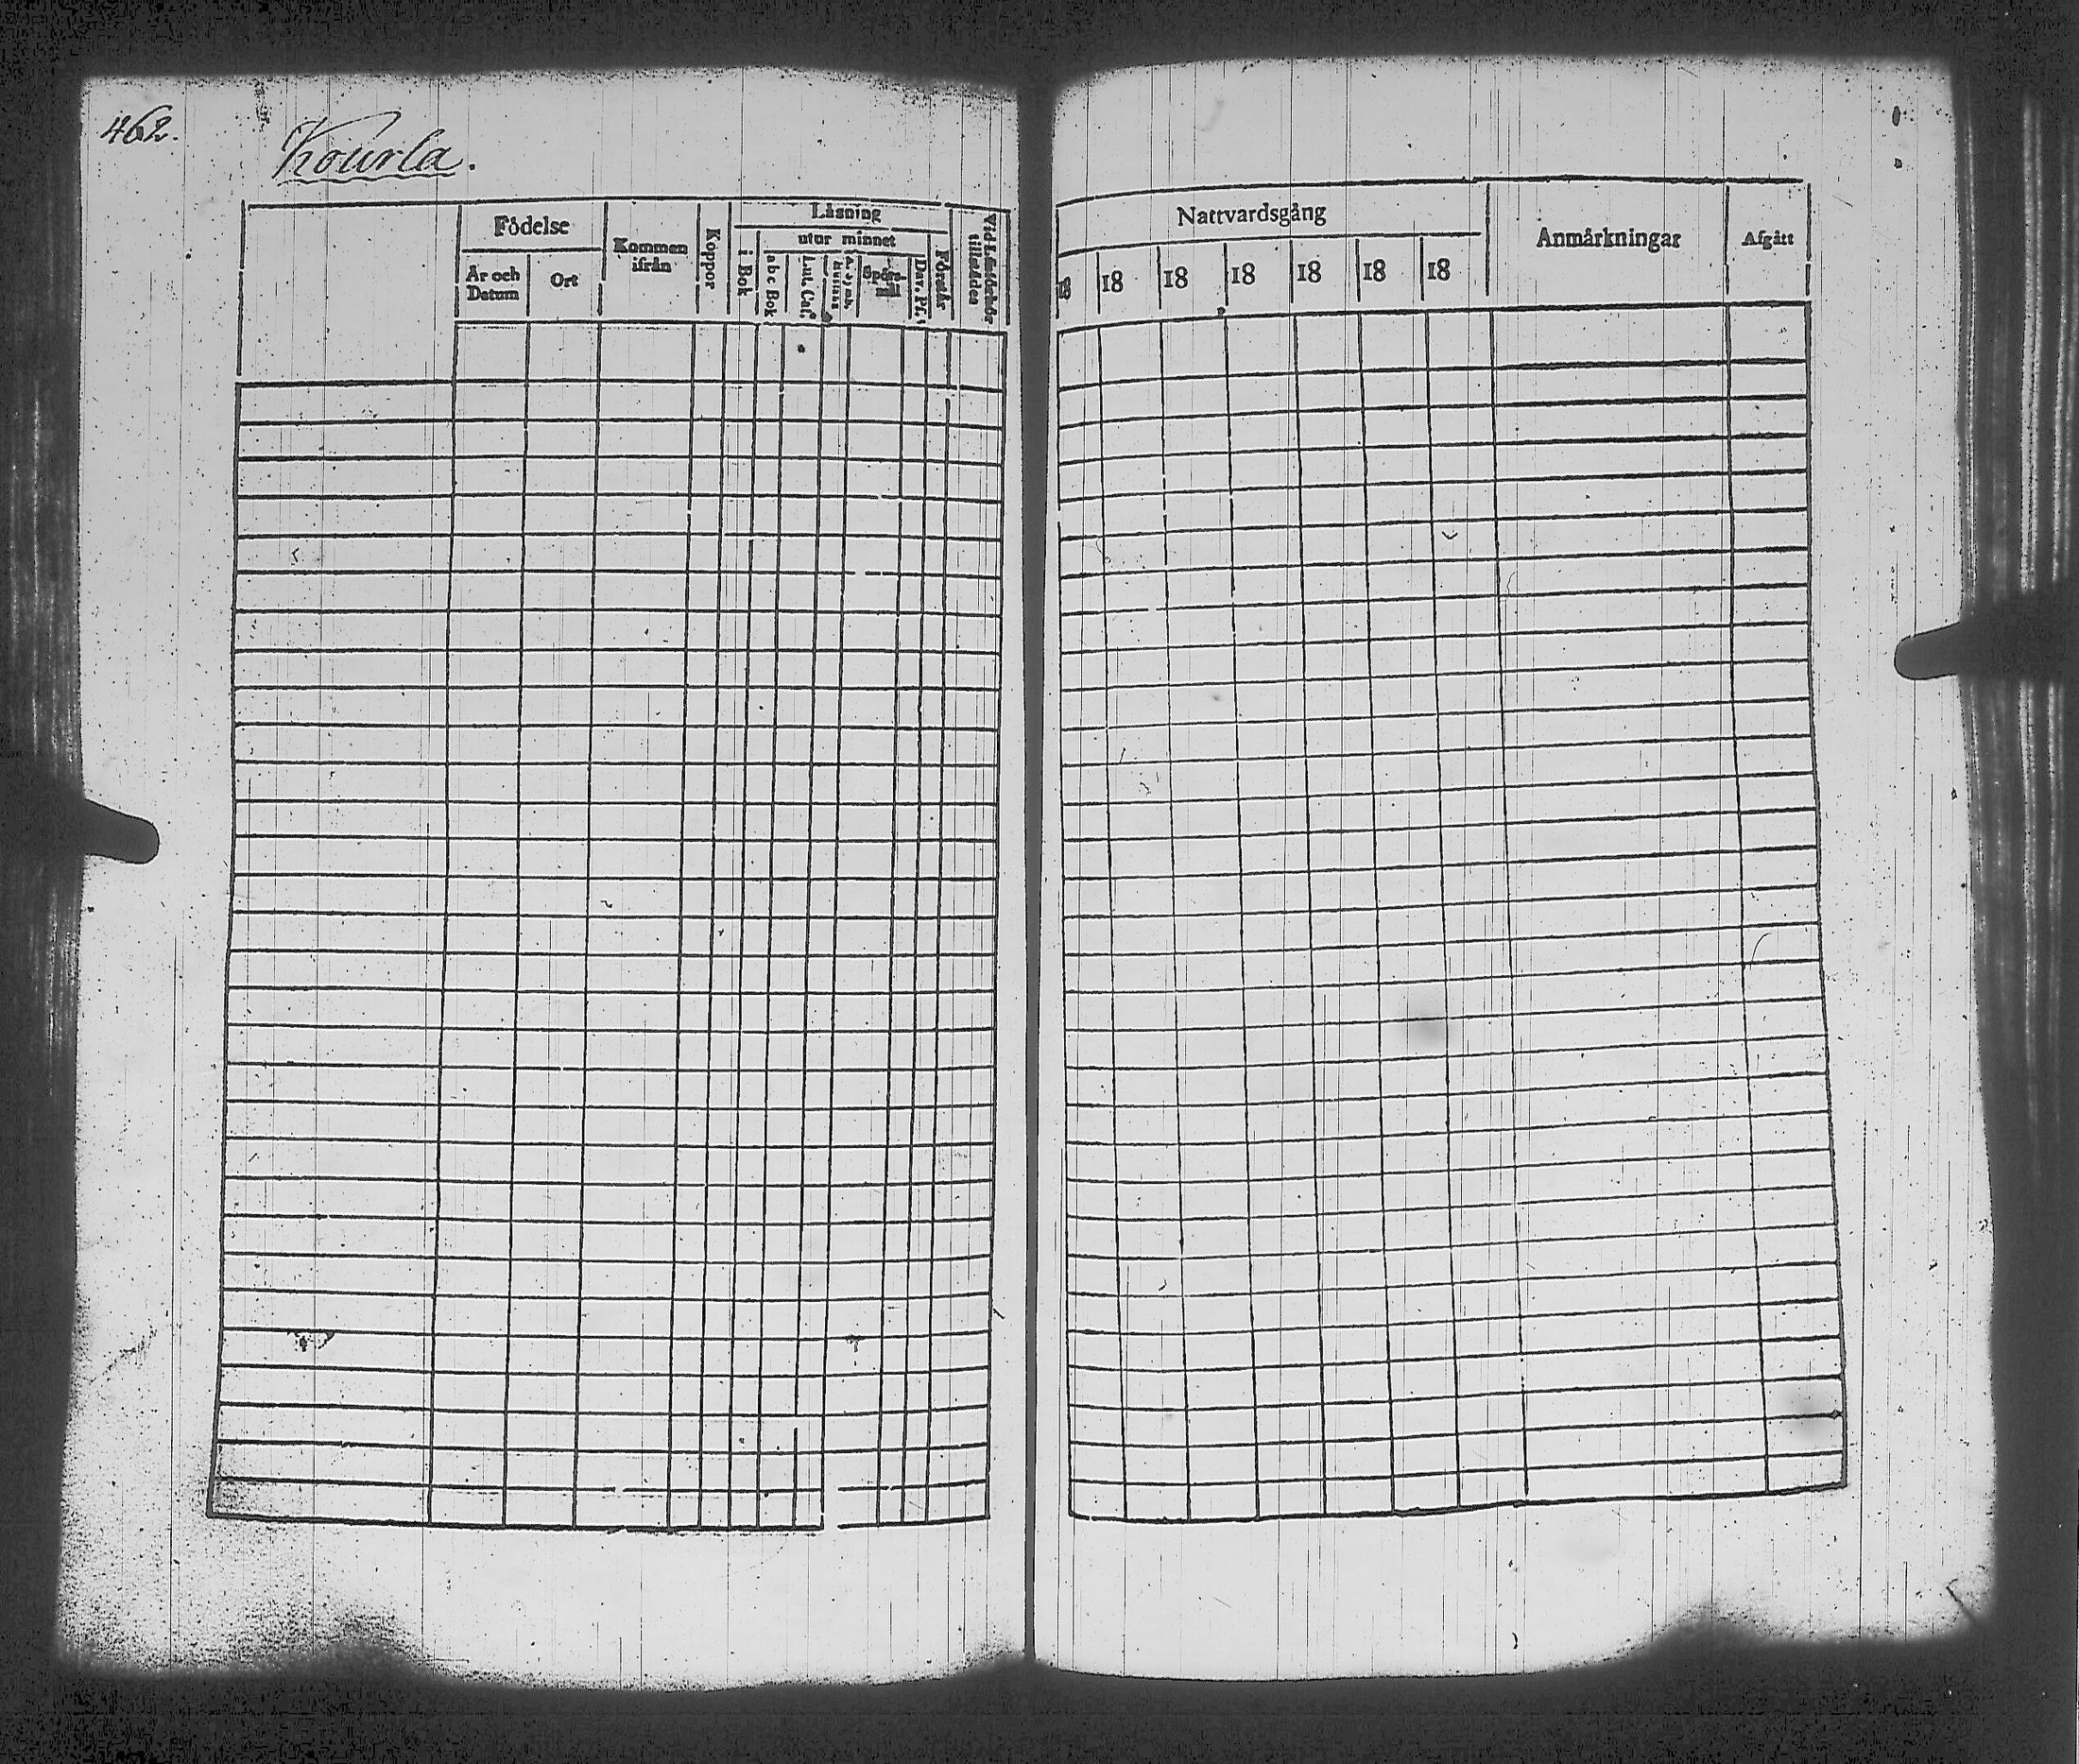 462.
Kourla.
Födelse
År och Datum
Ort
Kommen ifrån
Koppor
Låsning
i Bok
utur minnet
abc Bok
Lut. Cat.
Spörs-
Dav. Ps.
Förstår
Vid Läsförhör tillstädes
Nattvardsgång
18 18 18 18 18 18 18
Anmärkningar
Afgått